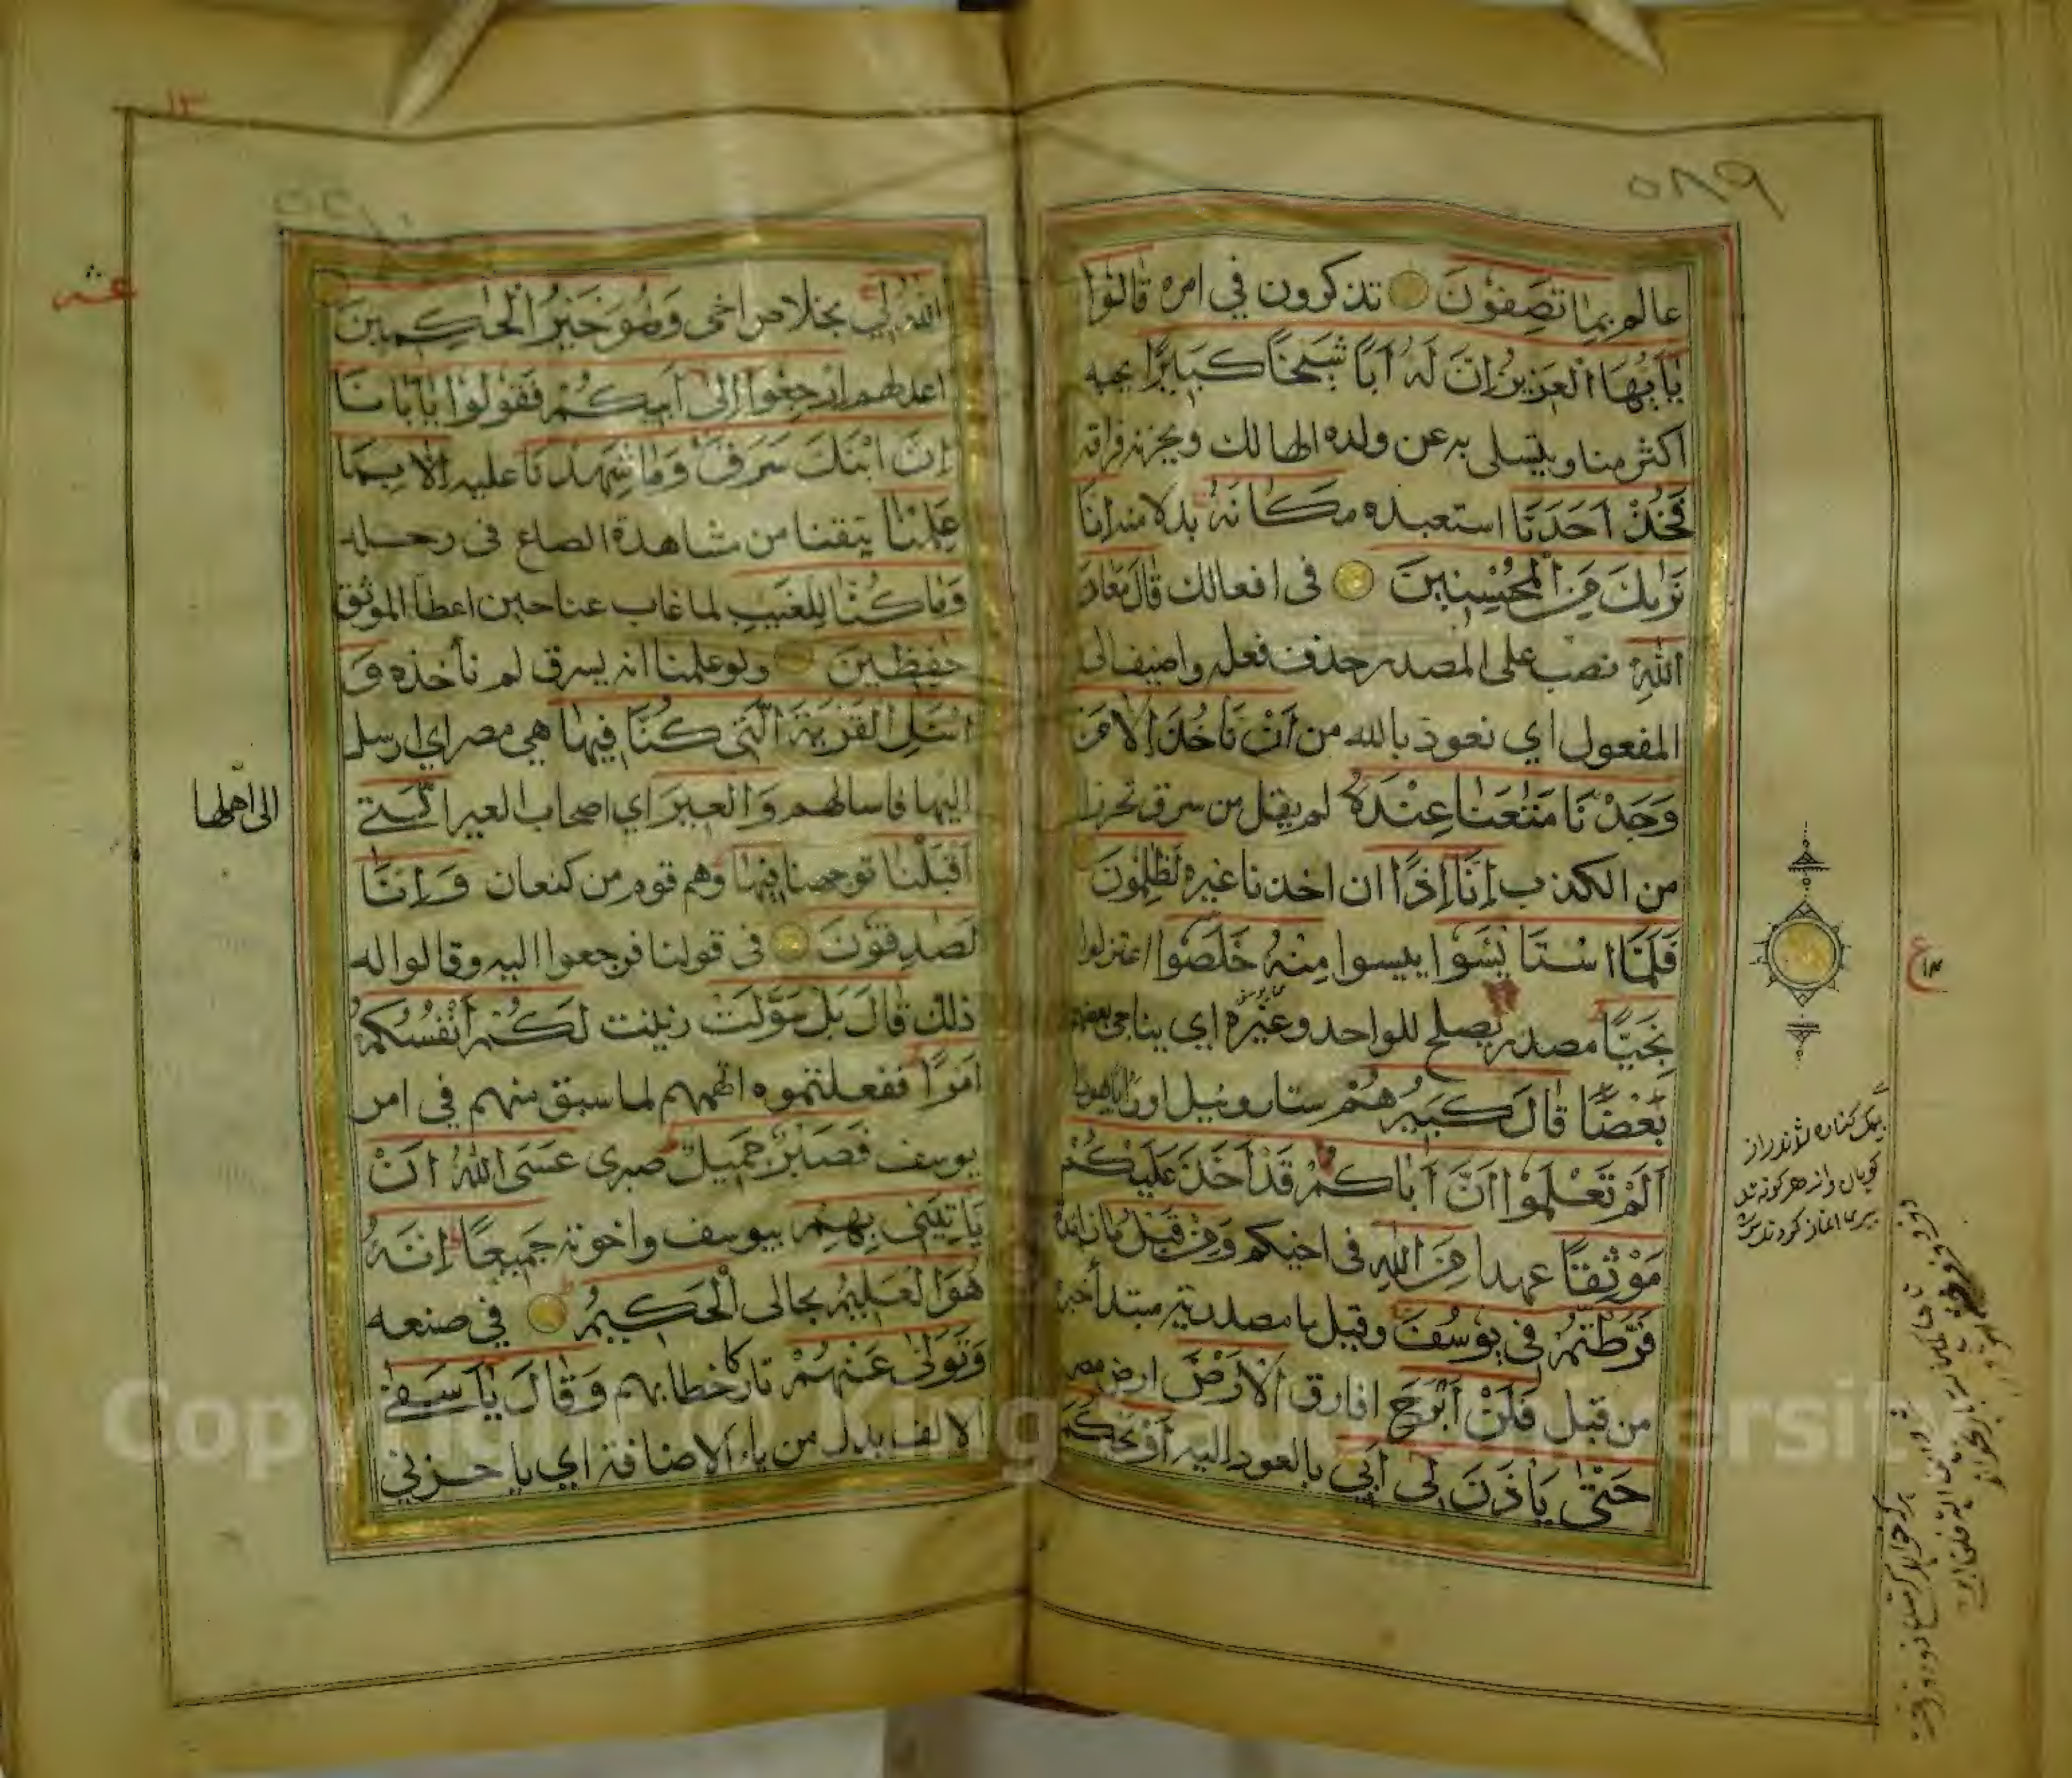 ٥٨٩
عالم بِمَا تَصِفُونَ تذكرون في امره قَالُوا
يَا أَيُّهَا الْعَزِيزُ إِنَّ لَهُ أَبًا شَيْخًا كَبِيرًا يحبه
اكثر منا ويتسلى به عن ولده الهالك ويحزنه فراقه
فَخُذْ أَحَدَنَا استعبده مَكَانَهُ بدلا منه إِنَّا
نَرٰىكَ مِنَ الْمُحْسِنِينَ فى افعالك قَالَ مَعَاذَ
اللهِ نصب على المصدر حذف فعله واضيف الى
المفعول اي نعوذ بالله من أَنْ نَأْخُذَ إِلَّا مَنْ
وَجَدْنَا مَتٰعَنَا عِنْدَهُ لم يقل من سرق تحرزا
من الكذب إِنَّا إِذًا ان اخذنا غيره لَظٰلِمُونَ
فَلَمَّا اسْتَايْئَسُوا ييسوا مِنْهُ خَلَصُوا اعتزلوا
نَجِيًّا مصدر يصلح للواحد وغيره اي يناجى بعضهم
بَعْضًا قَالَ كَبِيرُهُمْ سنا روبيل او رايا يهودا
أَلَمْ تَعْلَمُوا أَنَّ أَبَاكُمْ قَدْ أَخَذَ عَلَيْكُمْ
مَوْثِقًا عهدا مِنَ اللهِ فى اخيكم وَمِنْ قَبْلُ مَا زائدة
فَرَّطْتُمْ فِي يُوسُفَ وقيل ما مصدرية مبتدأ خبره
من قبل فَلَنْ أَبْرَحَ افارق الْأَرْضَ ارض مصر
حَتّٰى يَأْذَنَ لِي أَبِي بالعود اليه أَوْ يَحْكُمَ
ع
١٣
اللهُ لِي بخلاص اخى وَهُوَ خَيْرُ الْحٰكِمِينَ
اعدلهم ارْجِعُوا إِلَى أَبِيكُمْ فَقُولُوا يَا أَبَانَا
إِنَّ ابْنَكَ سَرَقَ وَمَا شَهِدْنَا عليه إِلَّا بِمَا
عَلِمْنَا تيقنا من شاهدة الصاع فى رحله
وَمَا كُنَّا لِلْغَيْبِ لما غاب عنا حين اعطا الموثق
حٰفِظِينَ ولو علمنا انه يسرق لم نأخذه وَ
اسْئَلِ الْقَرْيَةَ الَّتِي كُنَّا فِيهَا هي مصر اي ارسل
اليها فاسالهم وَالْعِيرَ اي اصحاب العير الَّتِي
الى اهلها
أَقْبَلْنَا توجهنا فِيهَا وهم قوم من كنعان وَإِنَّا
لَصٰدِقُونَ فى قولنا فرجعوا اليه وقالوا له
ذلك قَالَ بَلْ سَوَّلَتْ زينت لَكُمْ أَنْفُسُكُمْ
أَمْرًا ففعلتموه اتهمهم لما سبق منهم في امر
يوسف فَصَبْرٌ جَمِيلٌ صبرى عَسَى اللهُ أَنْ
يَأْتِيَنِي بِهِمْ بيوسف واخوته جَمِيعًا إِنَّهُ
هُوَ الْعَلِيمُ بحالى الْحَكِيمُ في صنعه
وَتَوَلّٰى عَنْهُمْ تاركا خطابهم وَقَالَ يَا أَسَفٰى
الالف بدل من ياء الاضافة اي يا حزني
Copyright © King Saud University